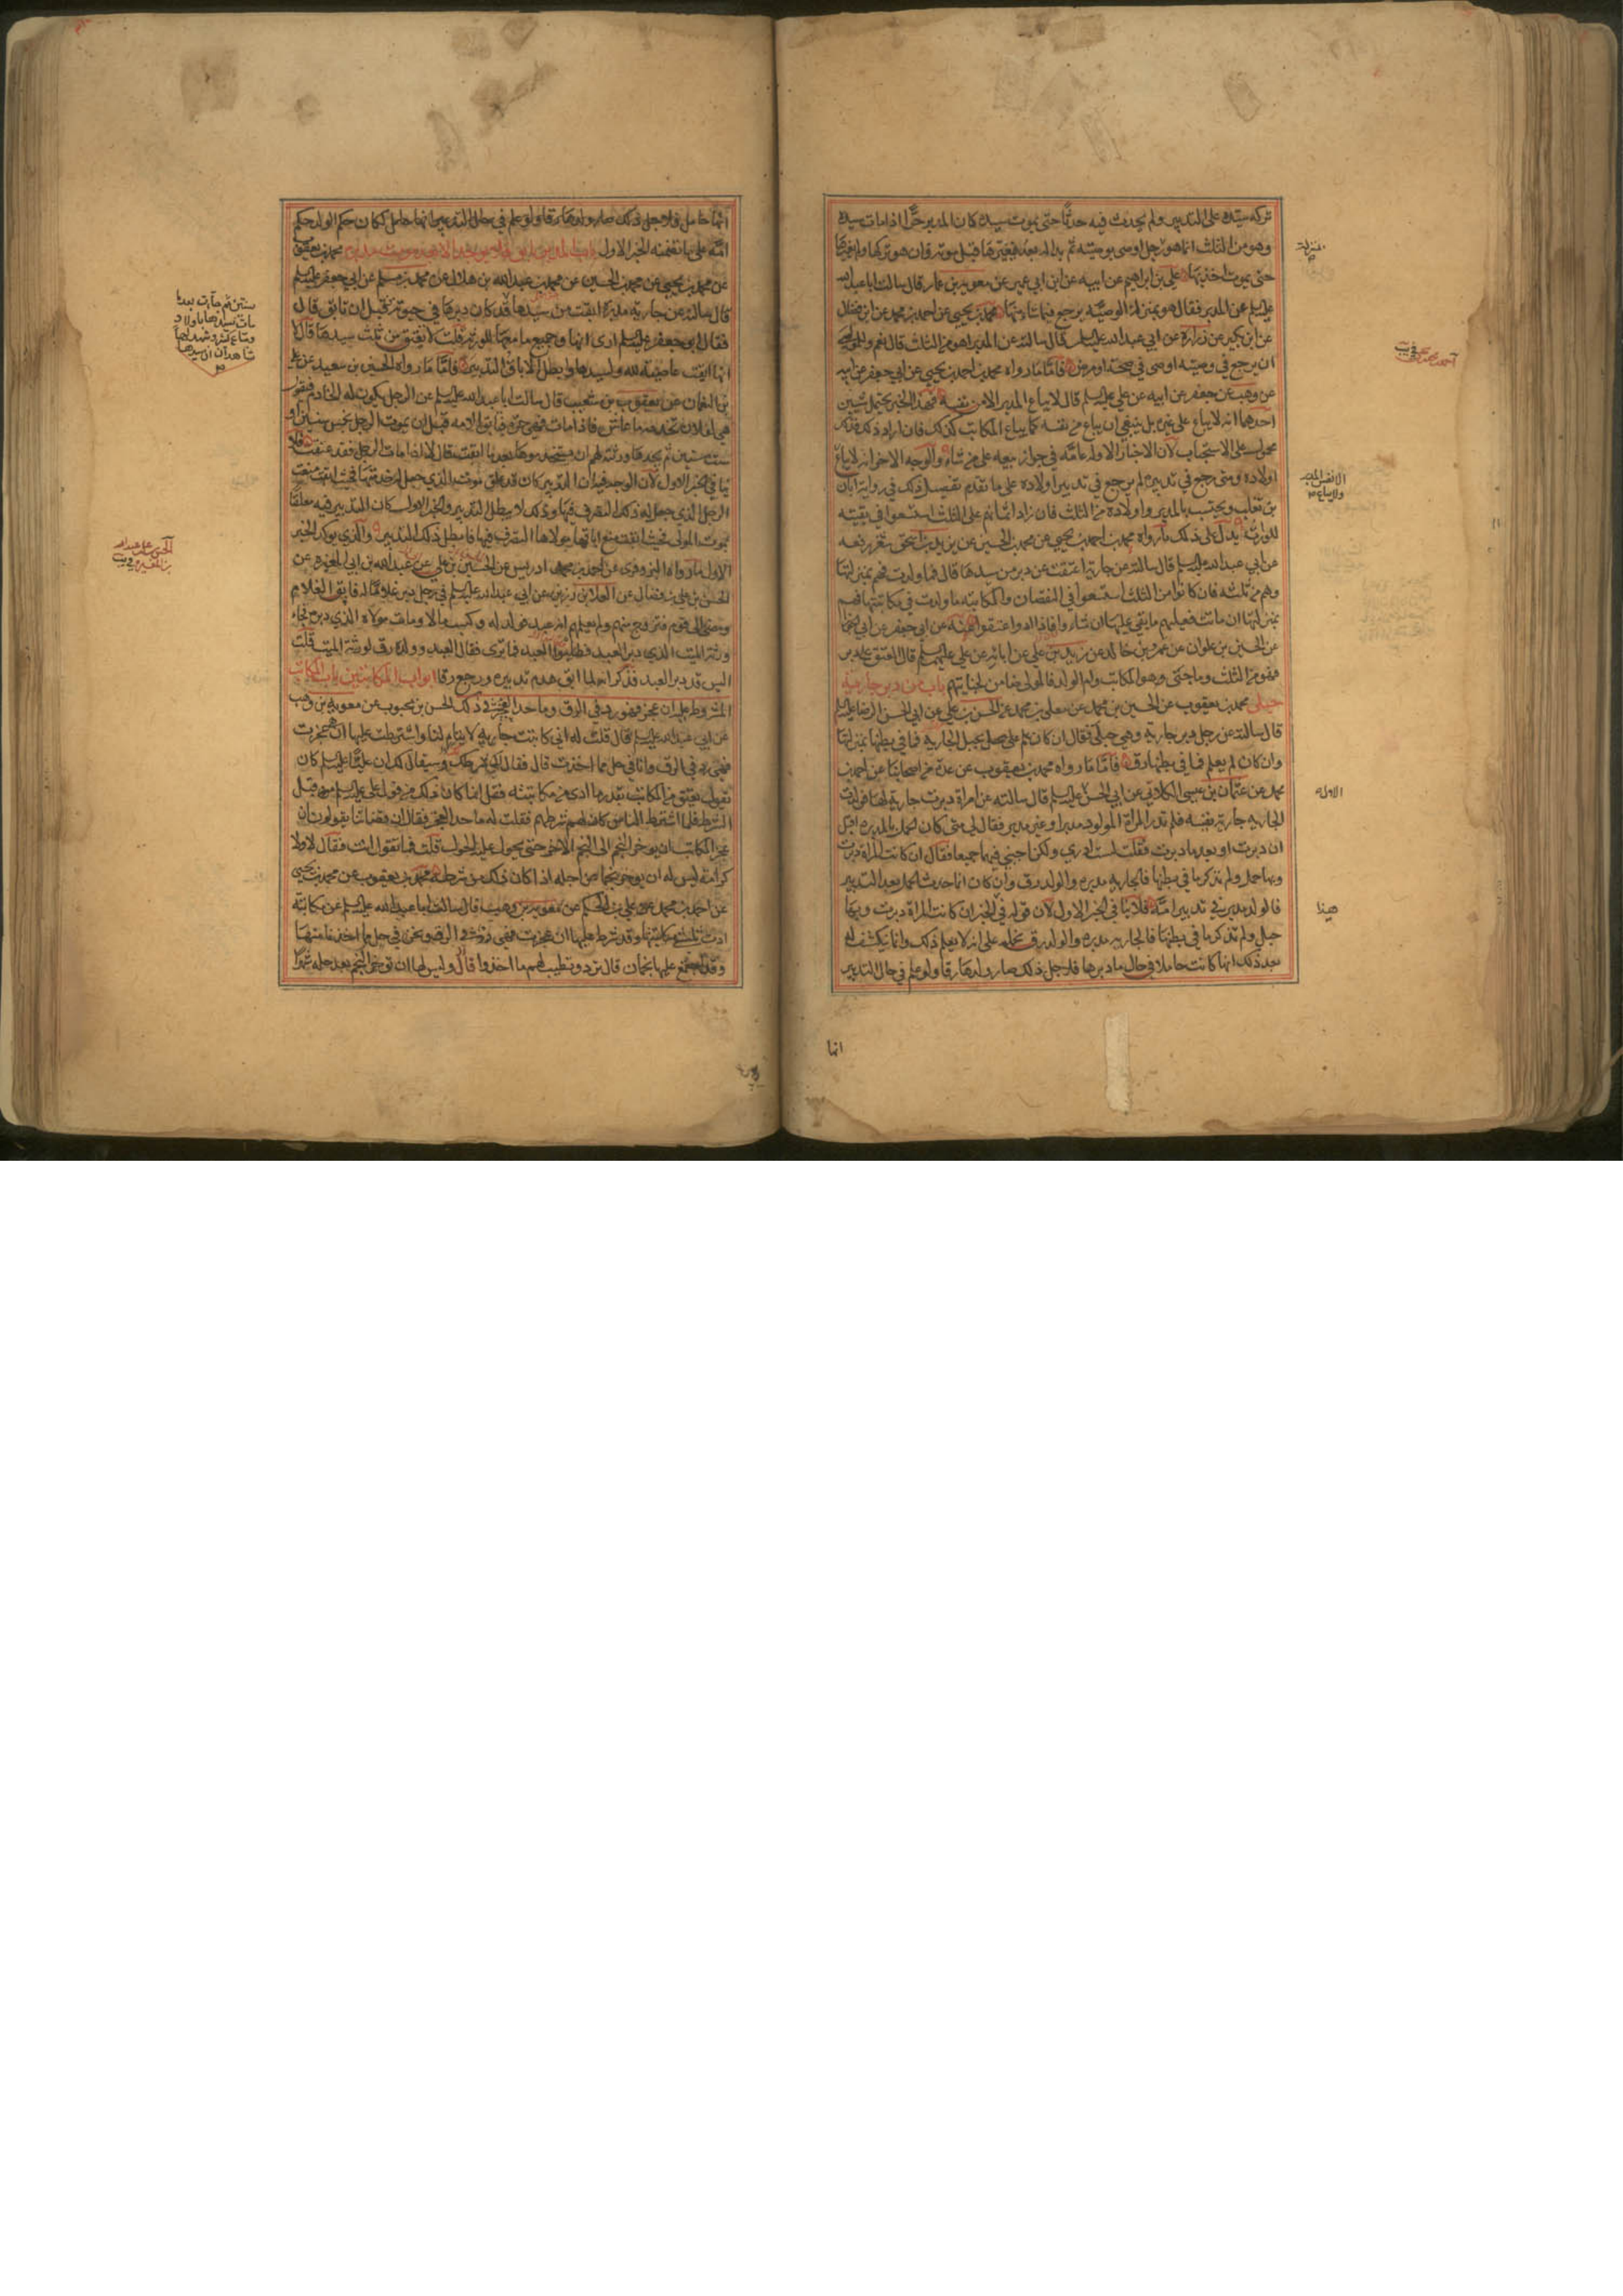 تركه سيده على التدبير ولم يحدث فيه حدثا حتى يموت سيده كان المدبر حرا اذا مات سيده
وهو من الثلث انما هو بمنزلة رجل اوصى بوصيته ثم بدا له بعد فغيرها قبل موته وان هو تركها ولم يغيرها
حتى يموت اخذ بها علي بن ابراهيم عن ابيه عن ابن ابي عمير عن معوية بن عمار قال سالت ابا عبد الله
عليه السلم عن المدبر فقال هو بمنزلة الوصية يرجع فيما شاء منها محمد بن يحيى عن احمد بن محمد عن ابن فضال
عن ابن بكير عن زرارة عن ابي عبد الله عليه السلم قال سالته عن المدبر اهو من الثلث قال نعم وللموصي
ان يرجع في وصيته اوصى في صحة او مرض فاما ما رواه محمد بن احمد بن يحيى عن ابي جعفر عن ابيه
عن وهب عن جعفر عن ابيه عن علي عليه السلم قال لا يباع المدبر الا من نفسه فهذا الخبر يحتمل شيئين
احدهما انه لا يباع على غيره بل ينبغي ان يباع من نفسه كما يباع المكاتب كذلك فان اراد ذلك فذلك
محمول على الاستحباب لان الاخبار الاولة عامة في جواز بيعه على من شاء والوجه الاخر انه لا يباع
اولاده ومتى رجع في تدبيره لم يرجع في تدبير اولاده على ما تقدم تفصيل ذلك في رواية ابان
بن تغلب ويحتسب بالمدبر واولاده من الثلث فان زاد اثمانهم على الثلث استسعوا في بقيته
للورثة يدل على ذلك ما رواه محمد بن احمد بن يحيى عن محمد بن الحسين عن يزيد بن اسحق شعر رفعه
عن ابي عبد الله عليه السلم قال سالته عن جارية اعتقت عن دبر من سيدها قال فما ولدت فهم بمنزلتها
وهم من ثلثه فان كانوا من الثلث استسعوا في النقصان والمكاتبة ما ولدت في مكاتبتها فهم
بمنزلتها ان ماتت فعليهم ما بقي عليها ان شاءوا فاذا ادوا اعتقوا عنه عن ابي جعفر عن ابي الجوزا
عن الحسين بن علوان عن عمرو بن خالد عن زيد بن علي عن ابائه عن علي عليهم السلم قال المعتق على دبر
فهو من الثلث وما جنى هو والمكاتب وام الولد فالمولى ضامن لجنايتهم باب من دبر جارية
حبلى محمد بن يعقوب عن الحسين بن محمد عن معلى بن محمد عن الحسن بن علي عن ابي الحسن الرضا عليه السلم
قال سالته عن رجل دبر جارية وهي حبلى فقال ان كان علم على حمل بحبل الجارية فما في بطنها بمنزلتها
وان كان لم يعلم فما في بطنها رق فاما ما رواه محمد بن يعقوب عن عدة من اصحابنا عن احمد بن
محمد عن عثمان بن عيسى الكلابي عن ابي الحسن عليه السلم قال سالته عن امراة دبرت جارية لها فولدت
الجارية جارية نفيسة فلم تدر المراة المولود مدبر او غير مدبر فقال لي متى كان الحمل بالمدبرة اقبل
ان دبرت او بعد ما دبرت فقلت لست ادري ولكن اجبني فيهما جميعا فقال ان كانت المراة دبرت
وبها حمل ولم تذكر ما في بطنها فالجارية مدبرة والولد رق وان كان انما حدث الحمل بعد التدبير
فالولد مدبر في تدبير امه فلا ينافي الخبر الاول لان قوله في الخبر ان كانت المراة دبرت وبها
حبل ولم تذكر ما في بطنها فالجارية مدبرة والولد رق نحمله على انه لا يعلم ذلك وانما يكشف له
بعد ذلك انها كانت حاملا في حال ما دبرها فلاجل ذلك صار ولدها رقا ولو علم في حال التدبير
انها
بمنزلة
احمد بن محمد
الا من نفسه المدبر
ولا يباع
الاولة
هذا
انها حامل فلاجل ذلك صار ولدها رقا ولو علم في حال التدبير انها حامل لكان حكم الولد حكم
امه على ما تضمنه الخبر الاول محمد بن يعقوب
عن محمد بن يحيى عن محمد بن الحسين عن محمد بن عبد الله بن هلال عن محمد بن مسلم عن ابي جعفر عليه السلم
قال سالته عن جارية مدبرة ابقت من سيدها قد كان دبرها في حيوته قبل ان تابق قال
فقال ابو جعفر عليه السلم ارى انها وجميع ما معها للورثة قلت لا تعتق من ثلث سيدها قال لا
انها ابقت عاصية لله ولسيدها وابطل الاباق التدبير فاما ما رواه الحسين بن سعيد عن علي
بن النعمان عن يعقوب بن شعيب قال سالت ابا عبد الله عليه السلم عن الرجل يكون له الخادم فيقول
هي لفلان تخدمه ما عاش فاذا مات فهي حرة فتابق الامه قبل ان يموت الرجل بخمس سنين او
ست سنين ثم يجدها ورثته لهم ان يستخدموها بعد ما ابقت قال لا اذا مات الرجل فقد عتقت فلا
ينافي الخبر الاول لان الوجه فيه ان التدبير كان قد علق بموت الذي جعل له خدمتها
الرجل الذي جعل له ذلك التصرف فيها وذلك لا يبطل التدبير والخبر الاول كان التدبير فيه معلقا
بموت المولى فحيث ابقت منع اباقها مولاها التصرف فيها فابطل ذلك التدبير والذي يوكد الخبر
الاول ما رواه البزوفري عن احمد بن ادريس عن الحسن بن علي عن عبد الله بن ابي المغيرة عن
الحسن بن علي بن فضال عن العلا بن رزين عن ابي عبد الله عليه السلم في رجل دبر غلاما له فابق الغلام
ومضى الى قوم فتزوج منهم ولم يعلمهم انه عبد فولد له وكسب مالا ومات مولاه الذي دبره فجاء
ورثة الميت الذي دبر العبد فطلبوا العبد فما ترى فقال العبد وولده رق لورثة الميت قلت
اليس قد دبر العبد فذكر انه لما ابق هدم تدبيره ورجع رقا ابواب المكاتبين باب المكاتب
المشروط عليه ان عجز فهو رد في الرق وما حد العجز في ذلك الحسن بن محبوب عن معوية بن وهب
عن ابي عبد الله عليه السلم قال قلت له اني كاتبت جارية لايتام لنا واشترطت عليها ان هي عجزت
فهي رد في الرق وانا في حل مما اخذت قال فقال لي لك شرطك وسيقال لك ان عليا عليه السلم كان
يقول يعتق من المكاتب بقدر ما ادى من مكاتبته فقل انما كان ذلك من قول علي عليه السلم قبل
الشرط فلما اشترط الناس كان لهم شرطهم فقلت له ما حد العجز فقال ان قضاتنا يقولون ان
عجز المكاتب ان يوخر النجم الى النجم الاخر حتى يحول عليه الحول قلت فما تقول انت فقال لا ولا
كرامة ليس له ان يوخر نجما عن اجله اذا كان ذلك من شرطه محمد بن يعقوب عن محمد بن يحيى
عن احمد بن محمد عن علي بن الحكم عن معوية بن وهب قال سالت ابا عبد الله عليه السلم عن مكاتبة
ادت ثلثي مكاتبتها وقد شرط عليها ان عجزت فهي رد في الرق ونحن في حل مما اخذنا منها
وقد اجتمع عليها نجمان قال ترد وتطيب لهم ما اخذوا وقال وليس لها ان توخر النجم بعد حله شهرا
سنين ثم جاءت بعد ما
مات سيدها باولاد
ومتاع كثير وشهد لها
شاهدان ان سيدها